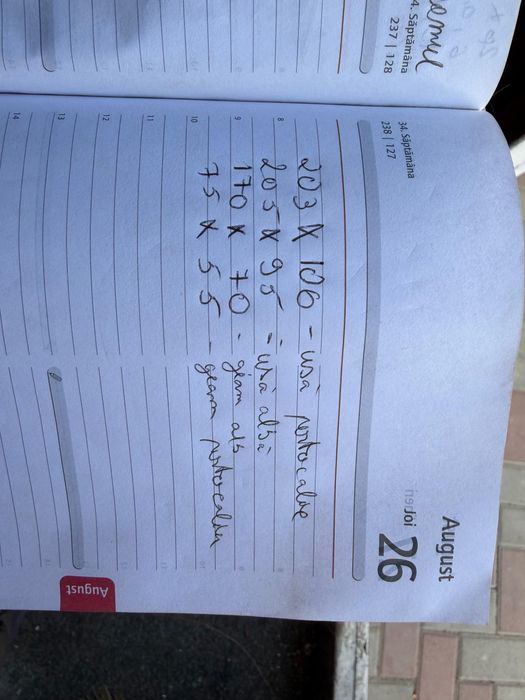 34. Săptămâna
238 | 127
August
Joi 26
8
203 x 106 - usă portocalie
205 x 95 - usă albă
9
170 x 70 - geam alb
10
75 x 55 - geam portocaliu
11
12
13
14
August
4. Săptămâna
237 | 128